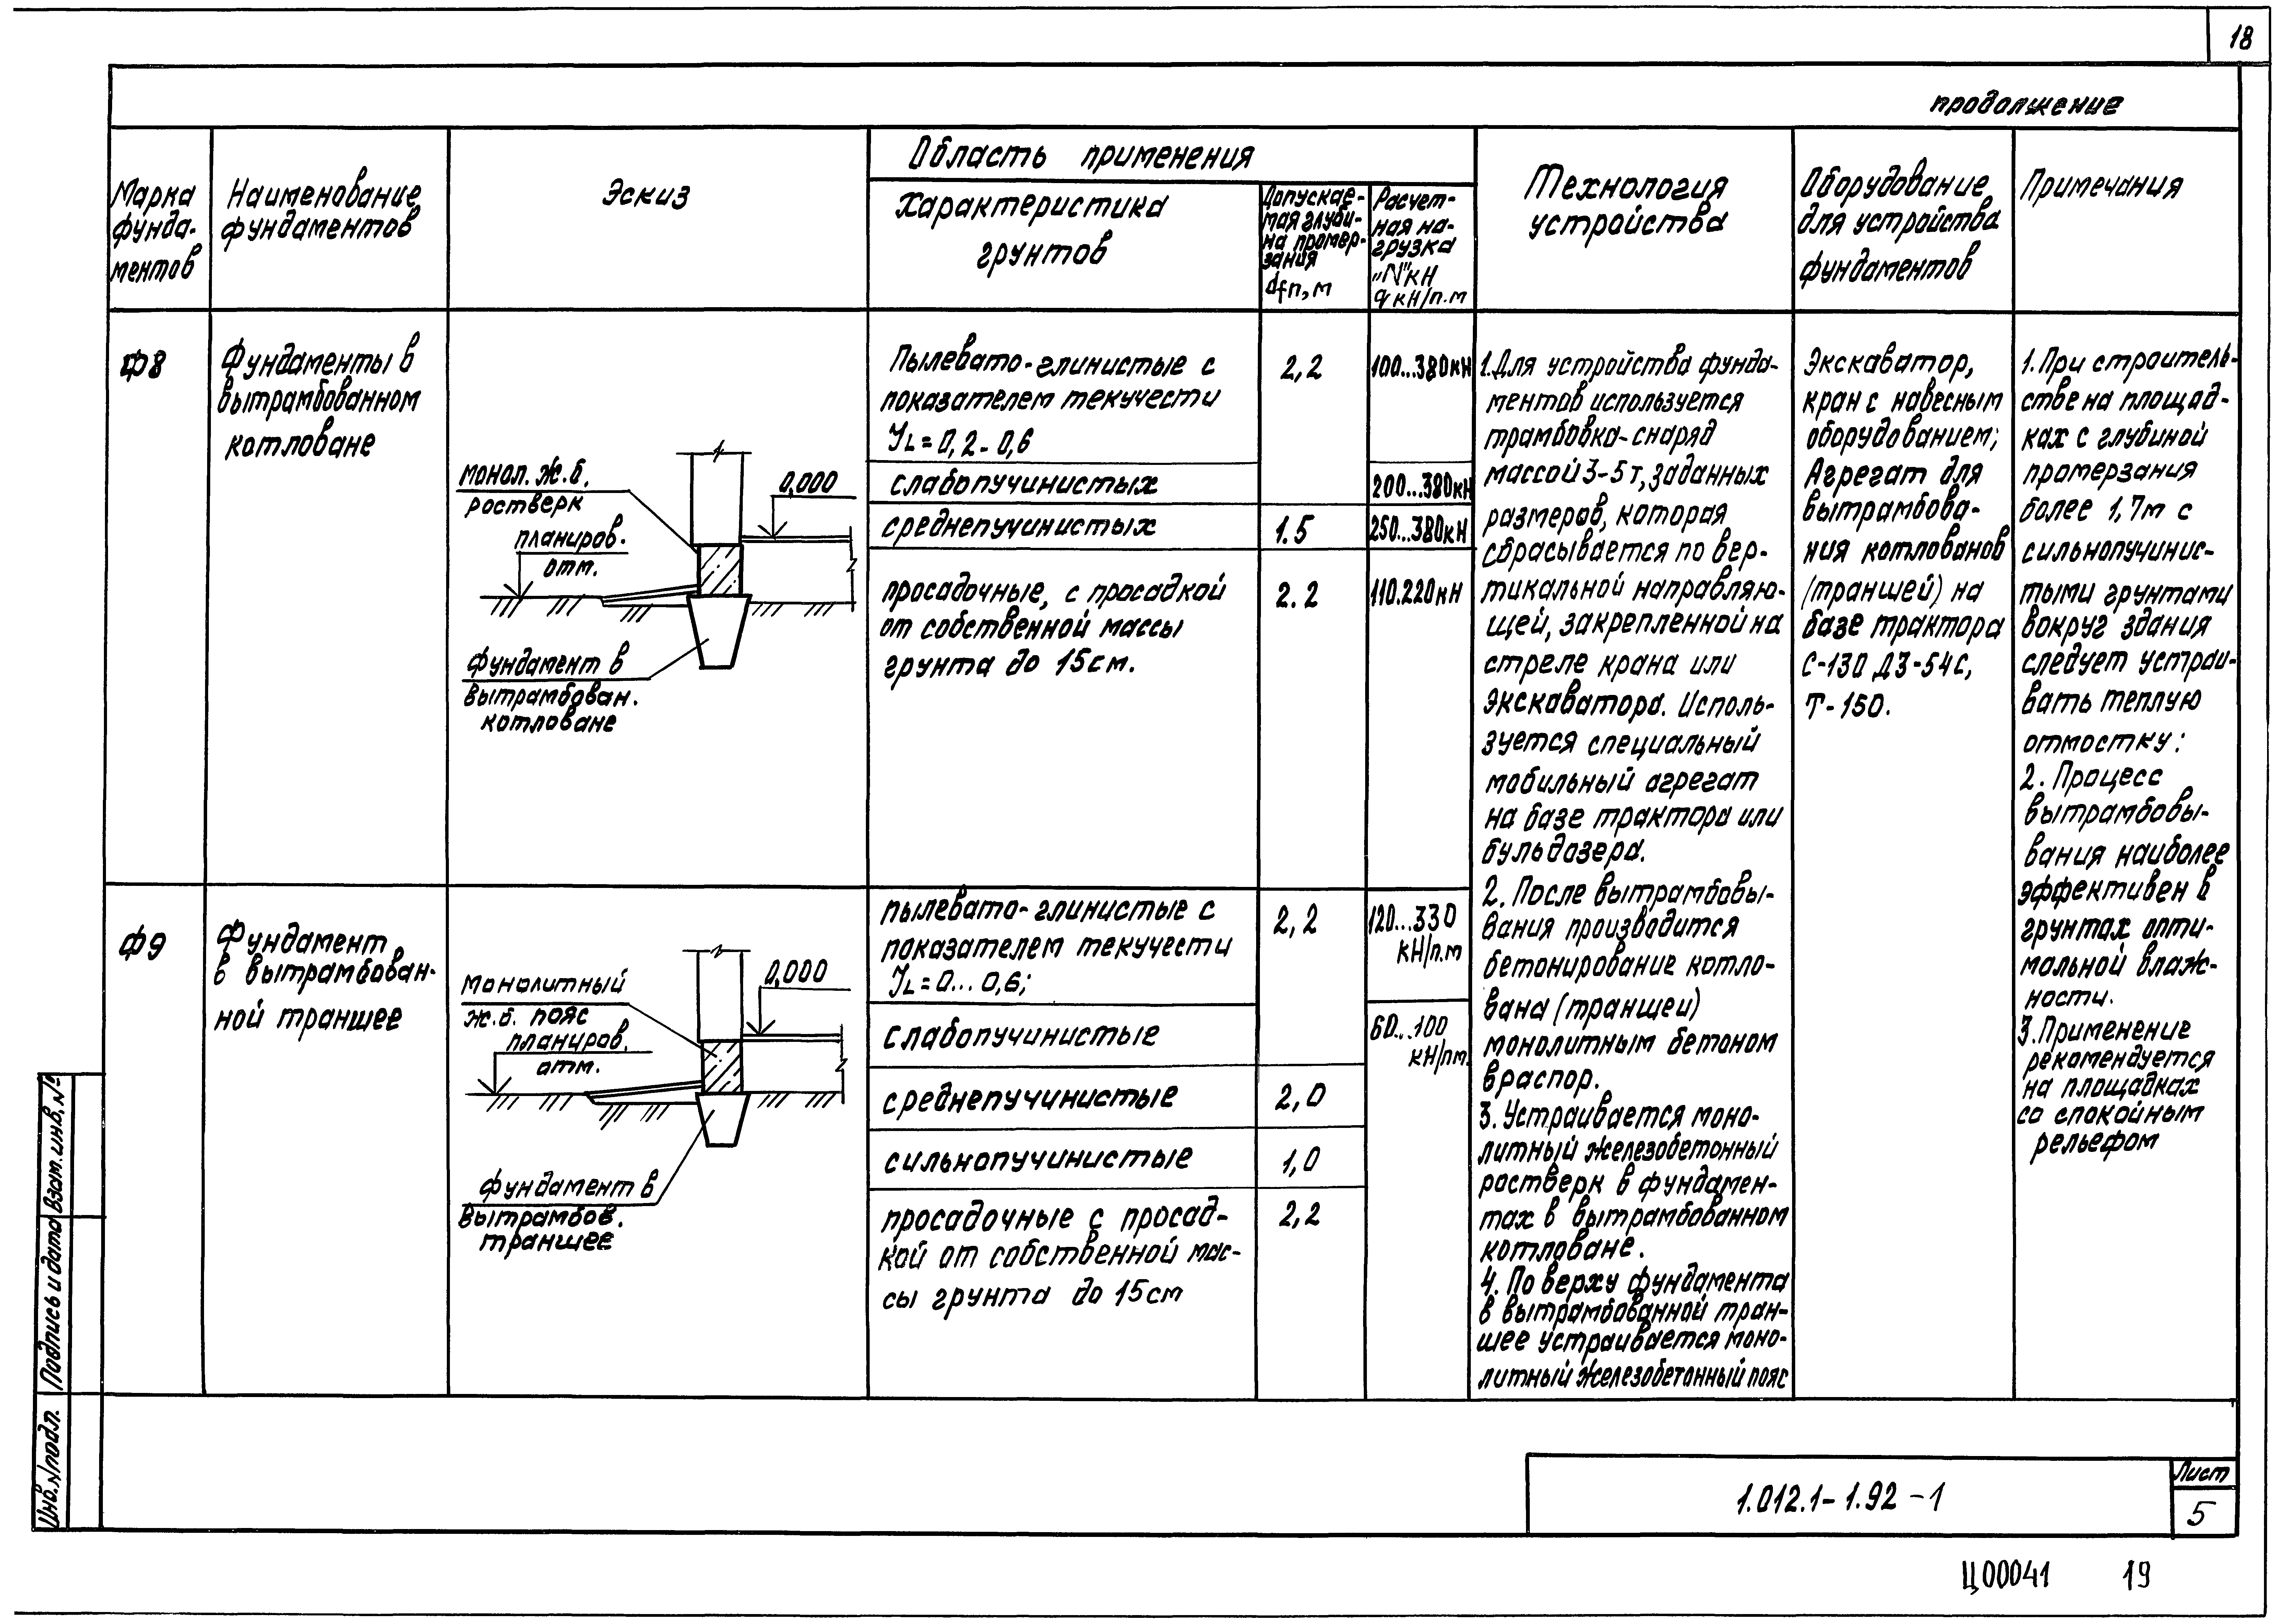 18
продолжение
Марка
фунда-
ментов
Наименование
фундаментов
Эскиз
Область применения
Характеристика
грунтов
Допускае-
мая глуби-
на промер-
зания
dfn, м
Расчет-
ная на-
грузка
"N" кН
q кН/п.м
Технология
устройства
Оборудование
для устройства
фундаментов
Примечания
Ф8
Фундаменты в
вытрамбованном
котловане
монол. ж.б.
ростверк
0,000
планиров.
отм.
фундамент в
вытрамбован.
котловане
Пылевато-глинистые с
показателем текучести
JL = 0,2 - 0,6
2,2
100...380кН
слабопучинистых
200...380кН
среднепучинистых
1.5
250...380кН
просадочные, с просадкой
от собственной массы
грунта до 15см.
2.2
110.220кН
1. Для устройства фунда-
ментов используется
трамбовка-снаряд
массой 3-5 т, заданных
размеров, которая
сбрасывается по вер-
тикальной направляю-
щей, закрепленной на
стреле крана или
экскаватора. Исполь-
зуется специальный
мобильный агрегат
на базе трактора или
бульдозера.
2. После вытрамбовы-
вания производится
бетонирование котло-
вана (траншеи)
монолитным бетоном
враспор.
3. Устраивается моно-
литный железобетонный
ростверк в фундамен-
тах в вытрамбованном
котловане.
4. По верху фундамента
в вытрамбованной тран-
шее устраивается моно-
литный железобетонный пояс
Экскаватор,
кран с навесным
оборудованием;
Агрегат для
вытрамбова-
ния котлованов
(траншей) на
базе трактора
С-130 ДЗ-54С,
Т-150.
1. При строитель-
стве на площад-
ках с глубиной
промерзания
более 1,7м с
сильнопучинис-
тыми грунтами
вокруг здания
следует устраи-
вать теплую
отмостку:
2. Процесс
вытрамбовы-
вания наиболее
эффективен в
грунтах опти-
мальной влаж-
ности.
3. Применение
рекомендуется
на площадках
со спокойным
рельефом
Ф9
Фундамент
в вытрамбован-
ной траншее
Монолитный
ж.б. пояс
0,000
планиров.
отм.
фундамент в
вытрамбов.
траншее
пылевато-глинистые с
показателем текучести
JL = 0... 0,6;
2,2
120...330
кН/п.м
слабопучинистые
60...100
кН/п.м.
среднепучинистые
2,0
сильнопучинистые
1,0
просадочные с просад-
кой от собственной мас-
сы грунта до 15см
2,2
Инв.N подл.
Подпись и дата
Взам.инв.№
1.012.1-1.92-1
Лист
5
Ц00041 19